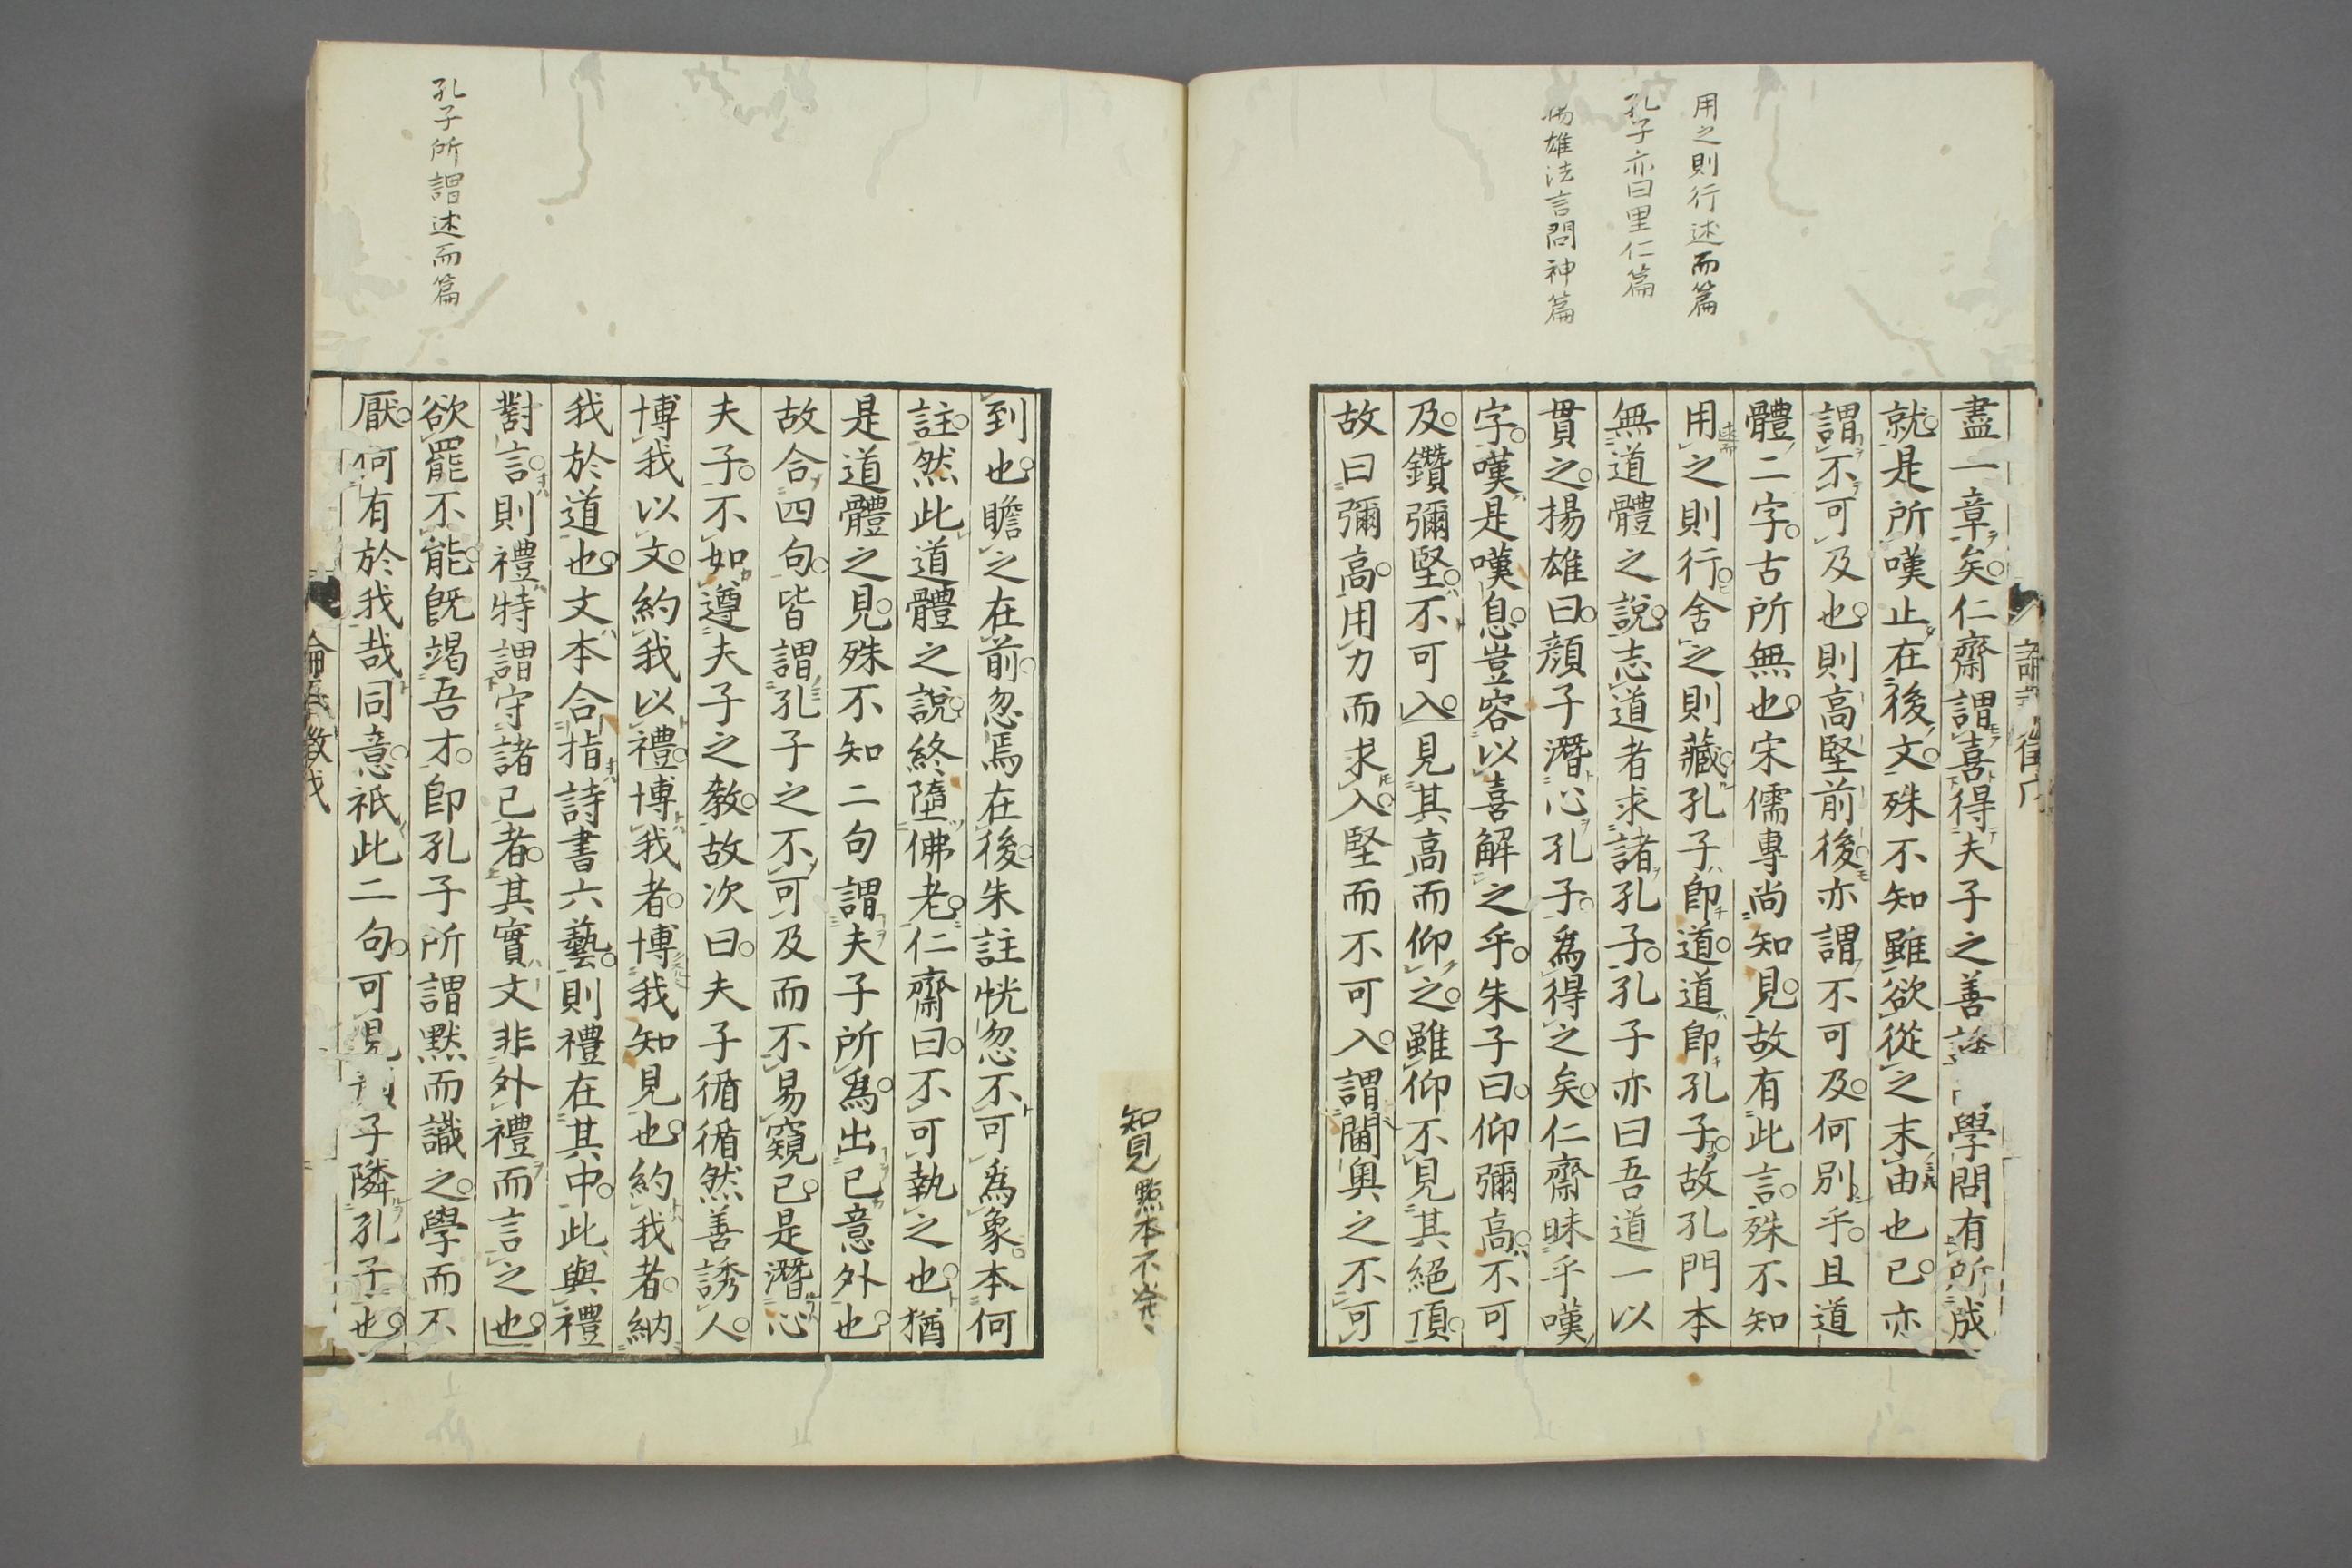 用之則行述而篇
孔子亦曰里仁篇
揚雄法言問神篇
盡一章矣仁齋謂喜得夫子之善誘學問有所成
就是所嘆止在後文殊不知雖欲從之末由也已亦
謂不可及也則高堅前後亦謂不可及何別乎且道
體二字古所無也宋儒專尚知見故有此言殊不知
用之則行舍之則藏孔子即道道即孔子故孔門本
無道體之說志道者求諸孔子孔子亦曰吾道一以
貫之揚雄曰顏子潛心孔子爲得之矣仁齋昧乎嘆
字嘆是嘆息豈容以喜解之乎朱子曰仰彌高不可
及鑽彌堅不可入見其高而仰之雖仰不見其絕頂
故曰彌高用力而求入堅而不可入謂閫奧之不可
知見點本不
到也瞻之在前忽焉在後朱註恍忽不可爲象本何
註然此道體之說終墮佛老仁齋曰不可執之也猶
是道體之見殊不知二句謂夫子所爲出己意外也
故合四句皆謂孔子之不可及而不易窺已是潛心
夫子不如遵夫子之教故次曰夫子循循然善誘人
博我以文約我以禮博我者博我知見也約我者納
我於道也文本合指詩書六藝則禮在其中此與禮
對言則禮特謂守諸己者其實文非外禮而言之也
欲罷不能既竭吾才即孔子所謂默而識之學而不
厭何有於我哉同意祇此二句可見子隣孔子也
孔子所謂述而篇
論語徵戊